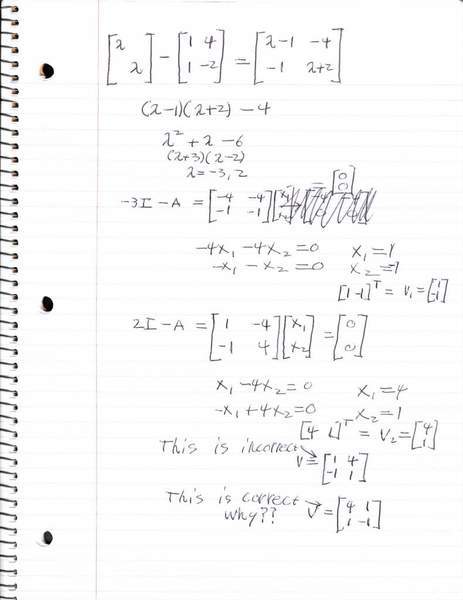 [λ λ] - [1 4 1 -2] = [λ-1 -4 -1 λ+2]
(λ-1)(λ+2) - 4
λ² + λ - 6
(λ+3)(λ-2)
λ = -3, 2
-3I - A = [-4 -4 -1 -1][x₁ = [0 0]
-4x₁ - 4x₂ = 0 x₁ = 1
-x₁ - x₂ = 0 x₂ = -1
[1 -1]ᵀ = v₁ = [1 -1]
2I - A = [1 -4 -1 4][x₁ x₂] = [0 0]
x₁ - 4x₂ = 0 x₁ = 4
-x₁ + 4x₂ = 0 x₂ = 1
[4 1]ᵀ = v₂ = [4 1]
This is incorrect
V = [1 4 -1 1]
This is correct
why?? V = [4 1 1 -1]